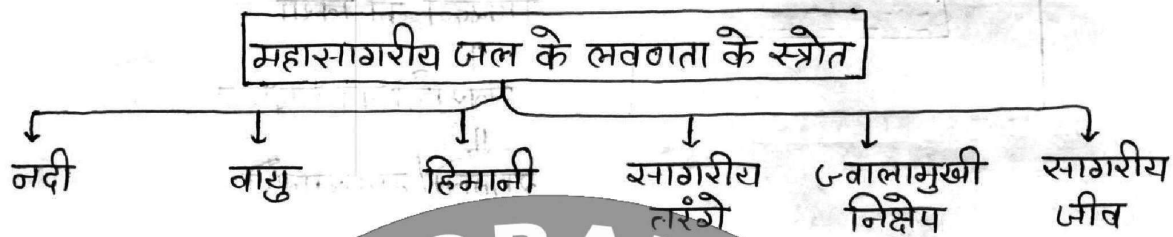 महासागरीय जल के लवणता के स्त्रोत
नदी वायु हिमानी सागरीय तरंगे ज्वालामुखी निक्षेप सागरीय जीव